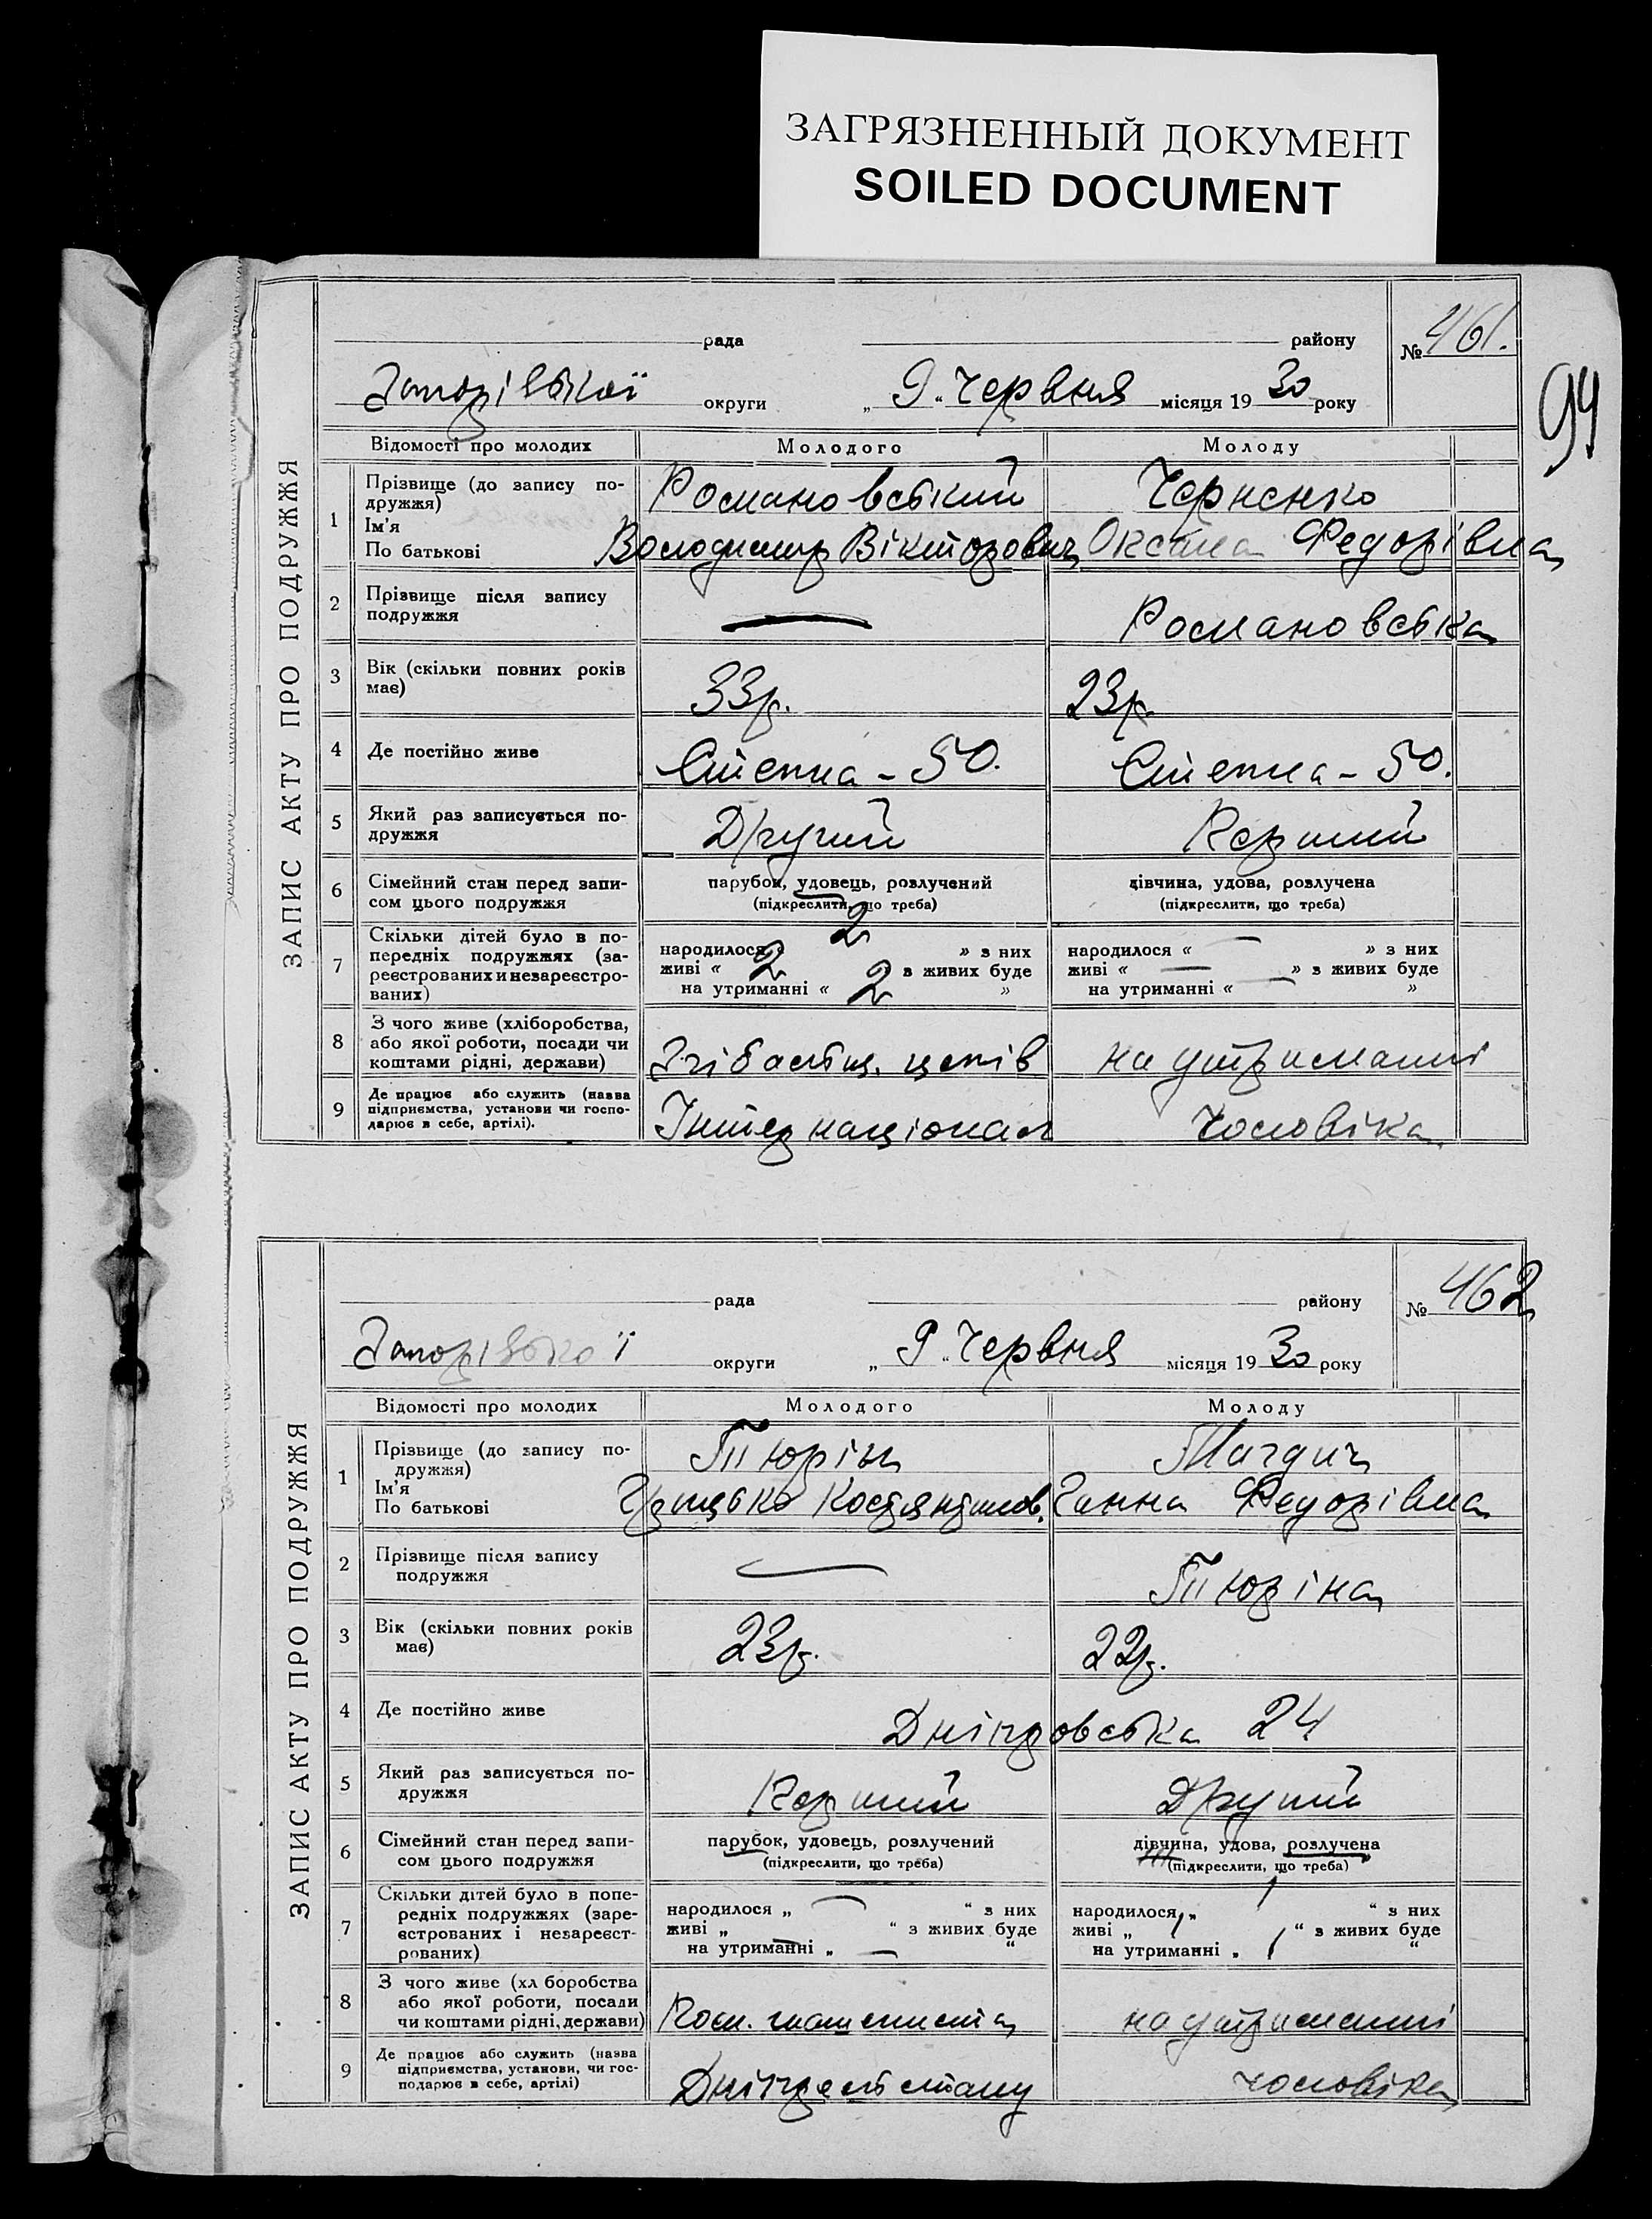 ЗАГРЯЗНЕННЫЙ ДОКУМЕНТ
SOILED DOCUMENT
94
ЗАПИС АКТУ ПРО ПОДРУЖЖЯ
рада району № 461.
Запорізької округи „ 9 “ Червня місяця 19 30 року
Відомості про молодих Молодого Молоду
1 Прізвище (до запису по-
дружжя) Романовський Черненко
Ім'я
По батькові Володимир Вікторович Оксана Федорівна
2 Прізвище після запису
подружжя — Романовська
3 Вік (скільки повних років
має) 33р. 23р.
4 Де постійно живе Степна – 50. Степна – 50.
5 Який раз записується по-
дружжя Другий Перший
6 Сімейний стан перед запи-
сом цього подружжя
парубок, удовець, розлучений дівчина, удова, розлучена
(підкреслити, що треба) (підкреслити, що треба)
7 Скільки дітей було в по-
передніх подружжях (за-
реєстрованих и незареєстро-
ваних)
народилося « 2 » з них народилося « — » з них
живі « 2 з живих буде живі « — » з живих буде
на утриманні « 2 » на утриманні « — »
8 З чого живе (хліборобства,
або якої роботи, посади чи
коштами рідні, держави) на утриманні
9 Де працює або служить (назва
підприємства, установи чи госпо-
дарює в себе, артілі). Інтернаціонал чоловіка.
ЗАПИС АКТУ ПРО ПОДРУЖЖЯ
рада району № 462
Запорізької округи „ 9 “ Червня місяця 19 30 року
Відомості про молодих Молодого Молоду
1 Прізвище (до запису по-
дружжя) Тюрін
Ім'я
По батькові Грицько Костянтинов. Ганна Федорівна
2 Прізвище після запису
подружжя — Тюріна
3 Вік (скільки повних років
має) 23р. 22р.
4 Де постійно живе Дніпровська 24
5 Який раз записується по-
дружжя Перший Другий
6 Сімейний стан перед запи-
сом цього подружжя
парубок, удовець, розлучений дівчина, удова, розлучена
(підкреслити, що треба) (підкреслити, що треба)
7 Скільки дітей було в попе-
редніх подружжях (заре-
єстрованих і незареєст-
рованих)
народилося „ — “ з них народилося „ 1 “ з них
живі „ — “ з живих буде живі „ 1 “ з живих буде
на утриманні „ — “ на утриманні „ 1 “
8 З чого живе (хл боробства
або якої роботи, посади
чи коштами рідні, держави) Пом. машиниста на утриманні
9 Де працює або служить (назва
підприємства, установи, чи гос-
подарює в себе, артілі) чоловіка